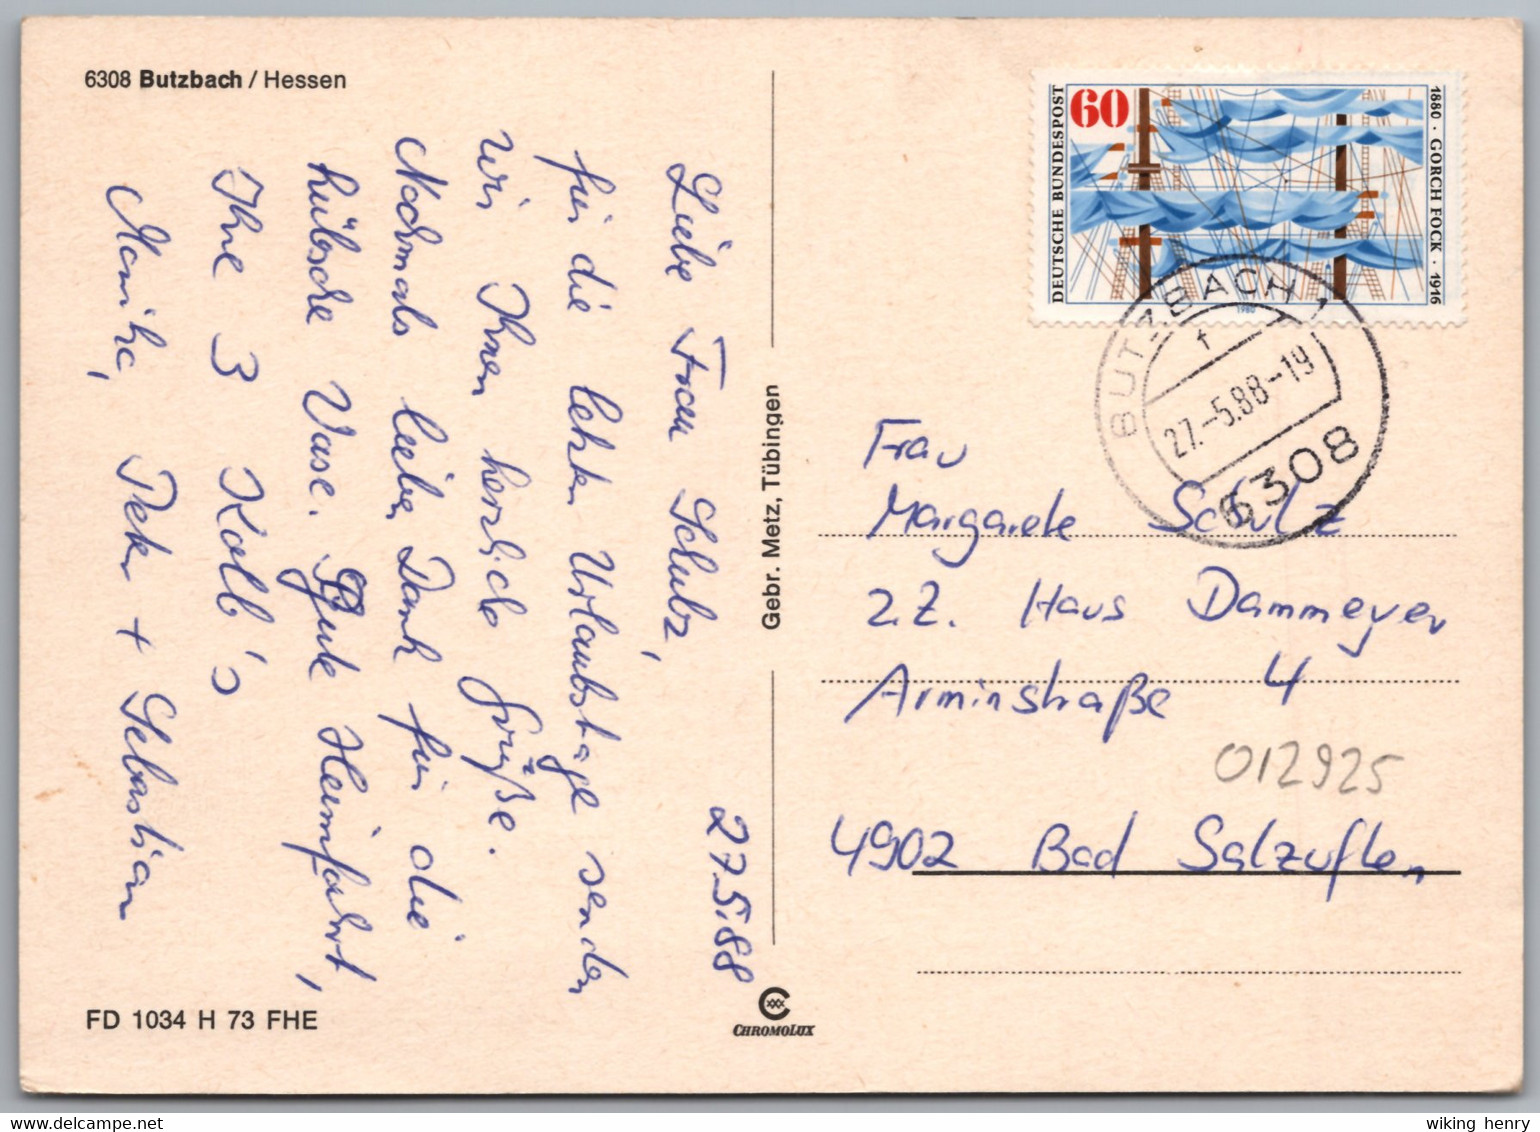 6308 Butzbach / Hessen
27.5.88
Liebe Frau Schulz,
für die letzten Urlaubstage senden
wir Ihnen herzliche Grüße.
Nochmals lieben Dank für die
hübsche Vase. Gute Heimfahrt,
Ihre 3 Kolb's
Monika, Peter + Sebastian
FD 1034 H 73 FHE
Gebr. Metz, Tübingen
CHROMOLUX
DEUTSCHE BUNDESPOST
60
1880 · GORCH FOCK · 1916
1980
BUTZBACH 1
f
27.-5.88-19
6308
Frau
Margarete Schulz
z.Z. Haus Dammeyer
Arminstraße 4
012925
4902 Bad Salzuflen
wiking henry